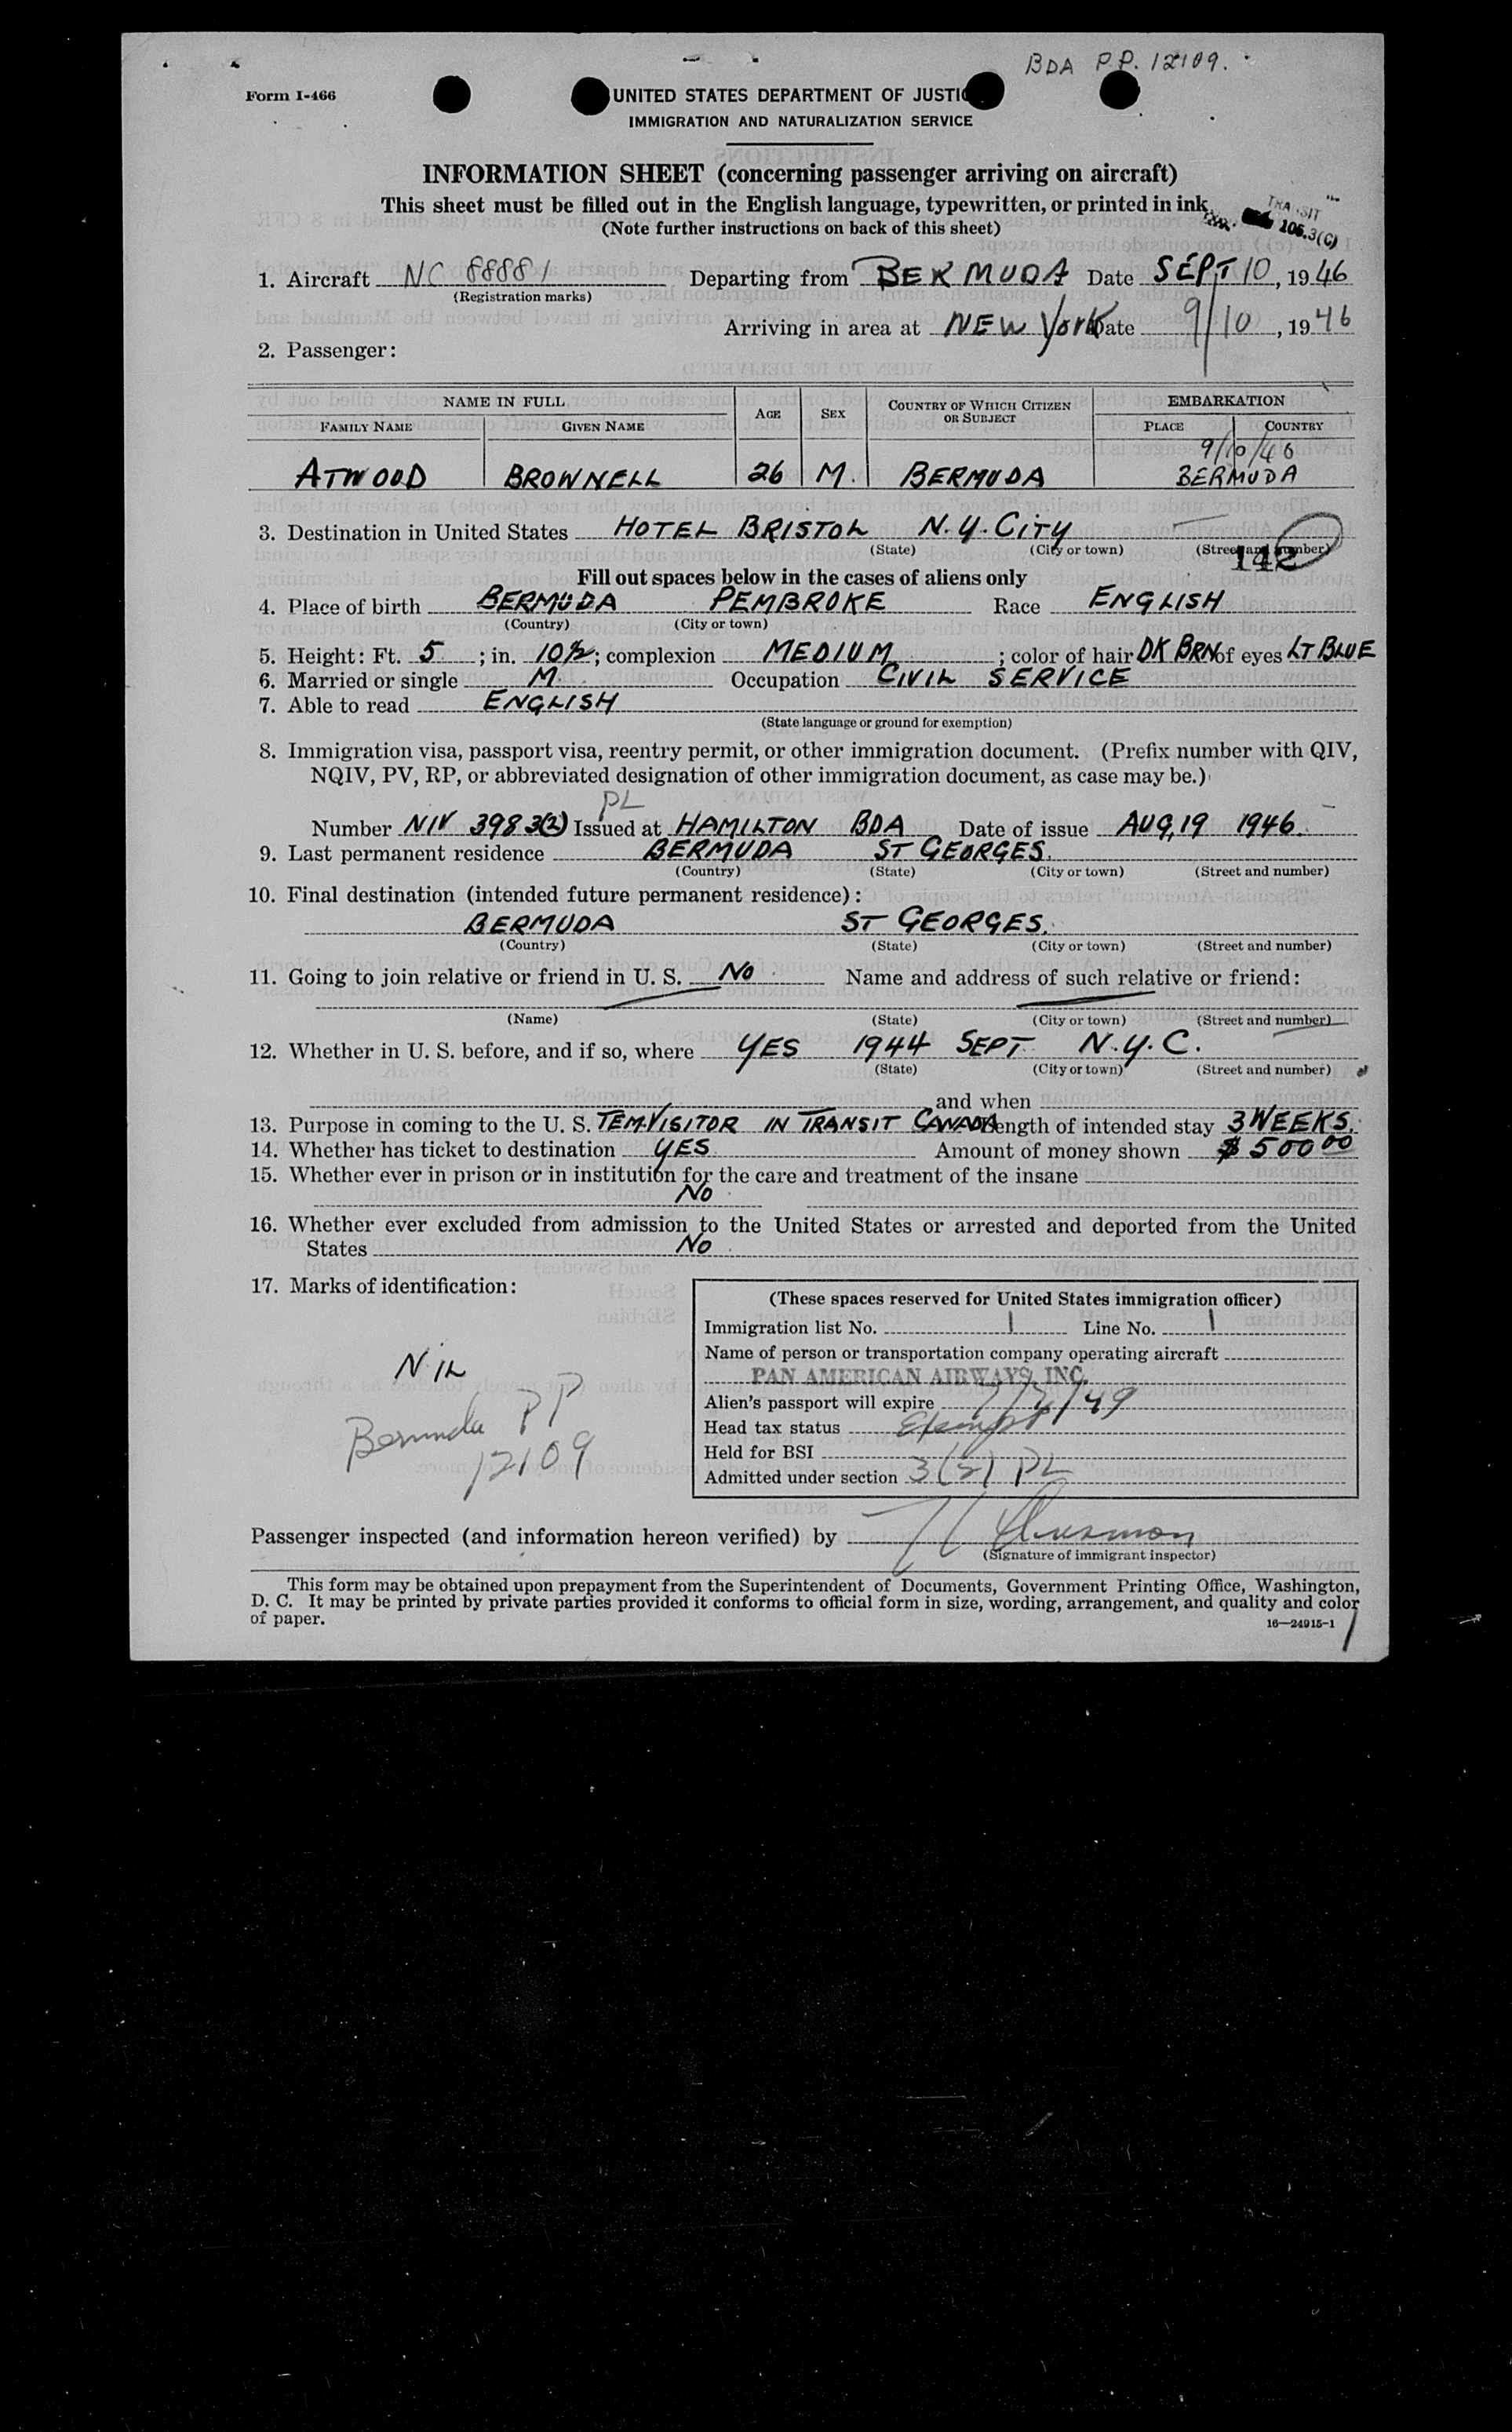 BDA P.P. 12109.
Form I-466
UNITED STATES DEPARTMENT OF JUSTIC
IMMIGRATION AND NATURALIZATION SERVICE
INFORMATION SHEET (concerning passenger arriving on aircraft)
This sheet must be filled out in the English language, typewritten, or printed in ink.
(Note further instructions on back of this sheet)
TRANSIT
106.3(C)
1. Aircraft NC 88881 Departing from BERMUDA Date SEPT 10, 1946
(Registration marks)
Arriving in area at NEW York Date 9/10, 1946
2. Passenger:
NAME IN FULL AGE SEX COUNTRY OF WHICH CITIZEN OR SUBJECT EMBARKATION
FAMILY NAME GIVEN NAME PLACE COUNTRY
9/10/46
ATWOOD BROWNELL 26 M. BERMUDA BERMUDA
3. Destination in United States HOTEL BRISTOL N.Y. CITY
(State) (City or town) (Street and number)
142
Fill out spaces below in the cases of aliens only
4. Place of birth BERMUDA PEMBROKE Race ENGLISH
(Country) (City or town)
5. Height: Ft. 5; in. 10½; complexion MEDIUM; color of hair DK BRN of eyes LT BLUE
6. Married or single M. Occupation CIVIL SERVICE
7. Able to read ENGLISH
(State language or ground for exemption)
8. Immigration visa, passport visa, reentry permit, or other immigration document. (Prefix number with QIV,
NQIV, PV, RP, or abbreviated designation of other immigration document, as case may be.)
PL
Number NIV 3983(2) Issued at HAMILTON BDA Date of issue AUG, 19 1946.
9. Last permanent residence BERMUDA ST GEORGES.
(Country) (State) (City or town) (Street and number)
10. Final destination (intended future permanent residence):
BERMUDA ST GEORGES.
(Country) (State) (City or town) (Street and number)
11. Going to join relative or friend in U. S. No. Name and address of such relative or friend:
(Name) (State) (City or town) (Street and number)
12. Whether in U. S. before, and if so, where YES 1944 SEPT N.Y.C.
(State) (City or town) (Street and number)
and when
13. Purpose in coming to the U. S. TEM. VISITOR IN TRANSIT CANADA Length of intended stay 3 WEEKS.
14. Whether has ticket to destination YES Amount of money shown $ 500 00
15. Whether ever in prison or in institution for the care and treatment of the insane
No.
16. Whether ever excluded from admission to the United States or arrested and deported from the United
States No.
17. Marks of identification:
NIL
Bermuda PP
12109
(These spaces reserved for United States immigration officer)
Immigration list No. 1 Line No. 1
Name of person or transportation company operating aircraft
PAN AMERICAN AIRWAYS, INC.
Alien's passport will expire 7/2/49
Head tax status Exempt
Held for BSI
Admitted under section 3(2) PL
Passenger inspected (and information hereon verified) by
(Signature of immigrant inspector)
This form may be obtained upon prepayment from the Superintendent of Documents, Government Printing Office, Washington,
D. C. It may be printed by private parties provided it conforms to official form in size, wording, arrangement, and quality and color
of paper.
16—24915-1